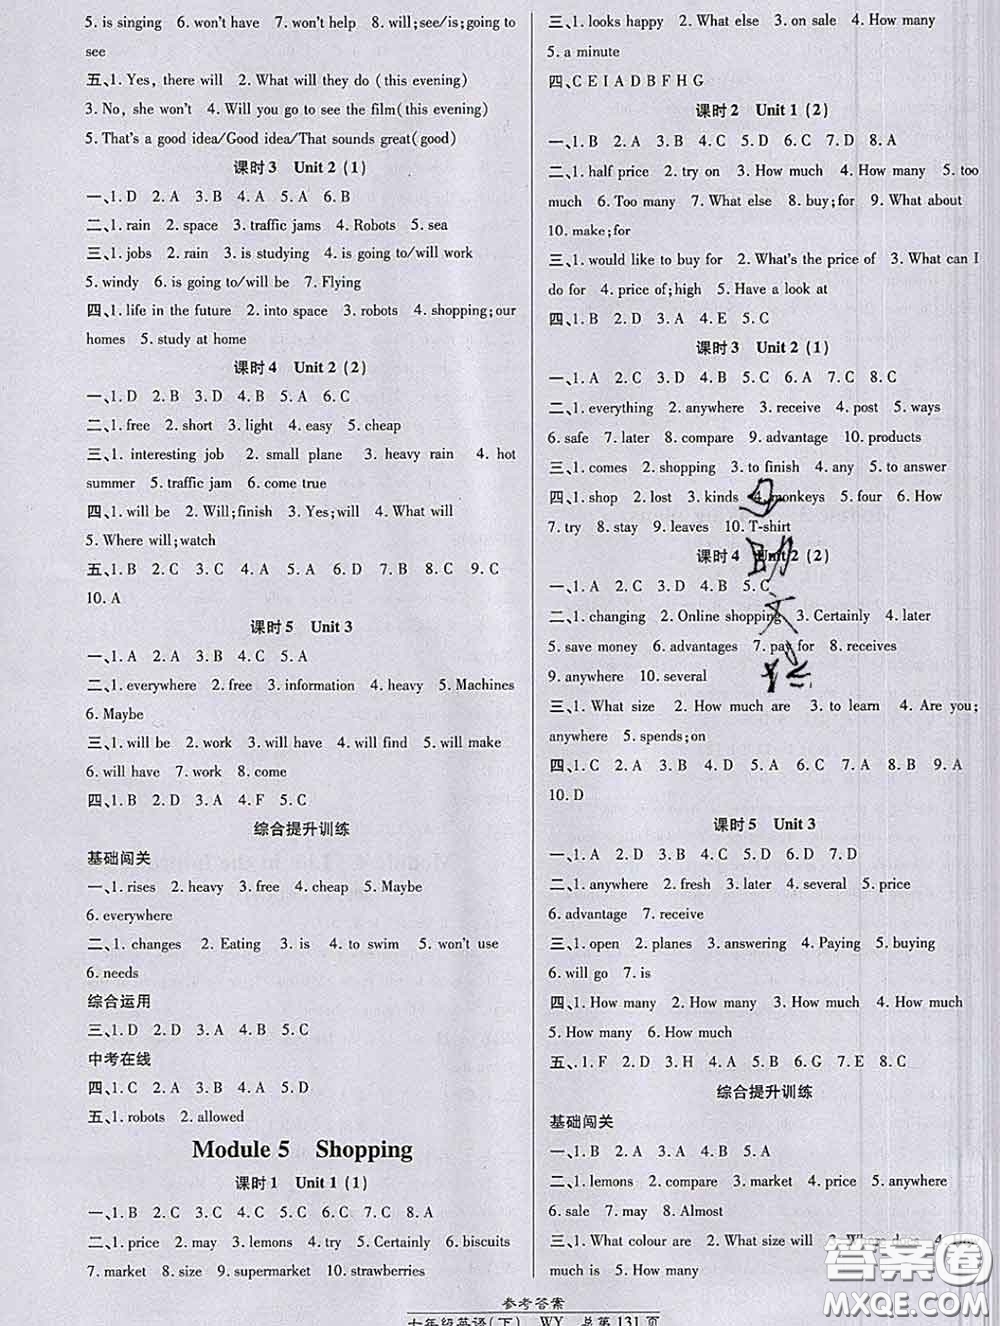 5. is singing 6. won't have 7. won't help 8. will;see/is;going to
see
五、1. Yes, there will 2. What will they do (this evening)
3. No, she won't 4. Will you go to see the film(this evening)
5. That's a good idea/Good idea/That sounds great(good)
课时3 Unit 2 (1)
一、1. D 2. A 3. B 4. A 5. A 6. B
二、1. rain 2. space 3. traffic jams 4. Robots 5. sea
三、1. jobs 2. rain 3. is studying 4. is going to/will work
5. windy 6. is going to/will be 7. Flying
四、1. life in the future 2. into space 3. robots 4. shopping;our
homes 5. study at home
课时4 Unit 2 (2)
一、1. D 2. B 3. D 4. B 5. A 6. C
二、1. free 2. short 3. light 4. easy 5. cheap
三、1. interesting job 2. small plane 3. heavy rain 4. hot
summer 5. traffic jam 6. come true
四、1. will be 2. Will;finish 3. Yes;will 4. What will
5. Where will;watch
五、1. B 2. C 3. C 4. B 5. D 6. A 7. A 8. B 9. C
10. A
课时5 Unit 3
一、1. A 2. A 3. B 4. C 5. A
二、1. everywhere 2. free 3. information 4. heavy 5. Machines
6. Maybe
三、1. will be 2. work 3. will have 4. will find 5. will make
6. will have 7. work 8. come
四、1. B 2. D 3. A 4. F 5. C
综合提升训练
基础闯关
一、1. rises 2. heavy 3. free 4. cheap 5. Maybe
6. everywhere
二、1. changes 2. Eating 3. is 4. to swim 5. won't use
6. needs
综合运用
三、1. D 2. D 3. A 4. B 5. C
中考在线
四、1. C 2. A 3. B 4. C 5. D
五、1. robots 2. allowed
Module 5 Shopping
课时1 Unit 1 (1)
一、1. B 2. C 3. C 4. D 5. C 6. C 7. C 8. A
二、1. price 2. may 3. lemons 4. try 5. Certainly 6. biscuits
7. market 8. size 9. supermarket 10. strawberries
三、1. looks happy 2. What else 3. on sale 4. How many
5. a minute
四、C E I A D B F H G
课时2 Unit 1 (2)
一、1. B 2. A 3. C 4. C 5. D 6. C 7. D 8. A
二、1. half price 2. try on 3. How much 4. How many 5. too
much 6. Too many 7. What else 8. buy;for 9. What about
10. make;for
三、1. would like to buy for 2. What's the price of 3. What can I
do for 4. price of;high 5. Have a look at
四、1. B 2. D 3. A 4. E 5. C
课时3 Unit 2 (1)
一、1. A 2. C 3. D 4. A 5. B 6. C 7. C 8. C
二、1. everything 2. anywhere 3. receive 4. post 5. ways
6. safe 7. later 8. compare 9. advantage 10. products
三、1. comes 2. shopping 3. to finish 4. any 5. to answer
四、1. shop 2. lost 3. kinds 4. monkeys 5. four 6. How
7. try 8. stay 9. leaves 10. T-shirt
课时4 Unit 2 (2)
一、1. A 2. C 3. D 4. B 5. C
二、1. changing 2. Online shopping 3. Certainly 4. later
5. save money 6. advantages 7. pay for 8. receives
9. anywhere 10. several
三、1. What size 2. How much are 3. to learn 4. Are you;
anywhere 5. spends;on
四、1. C 2. A 3. D 4. A 5. D 6. B 7. C 8. B 9. A
10. D
课时5 Unit 3
一、1. A 2. C 3. D 4. A 5. C 6. D 7. D
二、1. anywhere 2. fresh 3. later 4. several 5. price
6. advantage 7. receive
三、1. open 2. planes 3. answering 4. Paying 5. buying
6. will go 7. is
四、1. How many 2. How many 3. How much 4. How much
5. How many 6. How much
五、1. F 2. D 3. H 4. A 5. B 6. G 7. E 8. C
综合提升训练
基础闯关
一、1. B 2. A 3. B 4. D 5. A
二、1. lemons 2. compare 3. market 4. price 5. anywhere
6. sale 7. may 8. Almost
三、1. What colour are 2. What size will 3. Where does 4. How
much is 5. How many
参考答案
七年级英语(下) WY 总第131页
答案圈
MXQE.COM